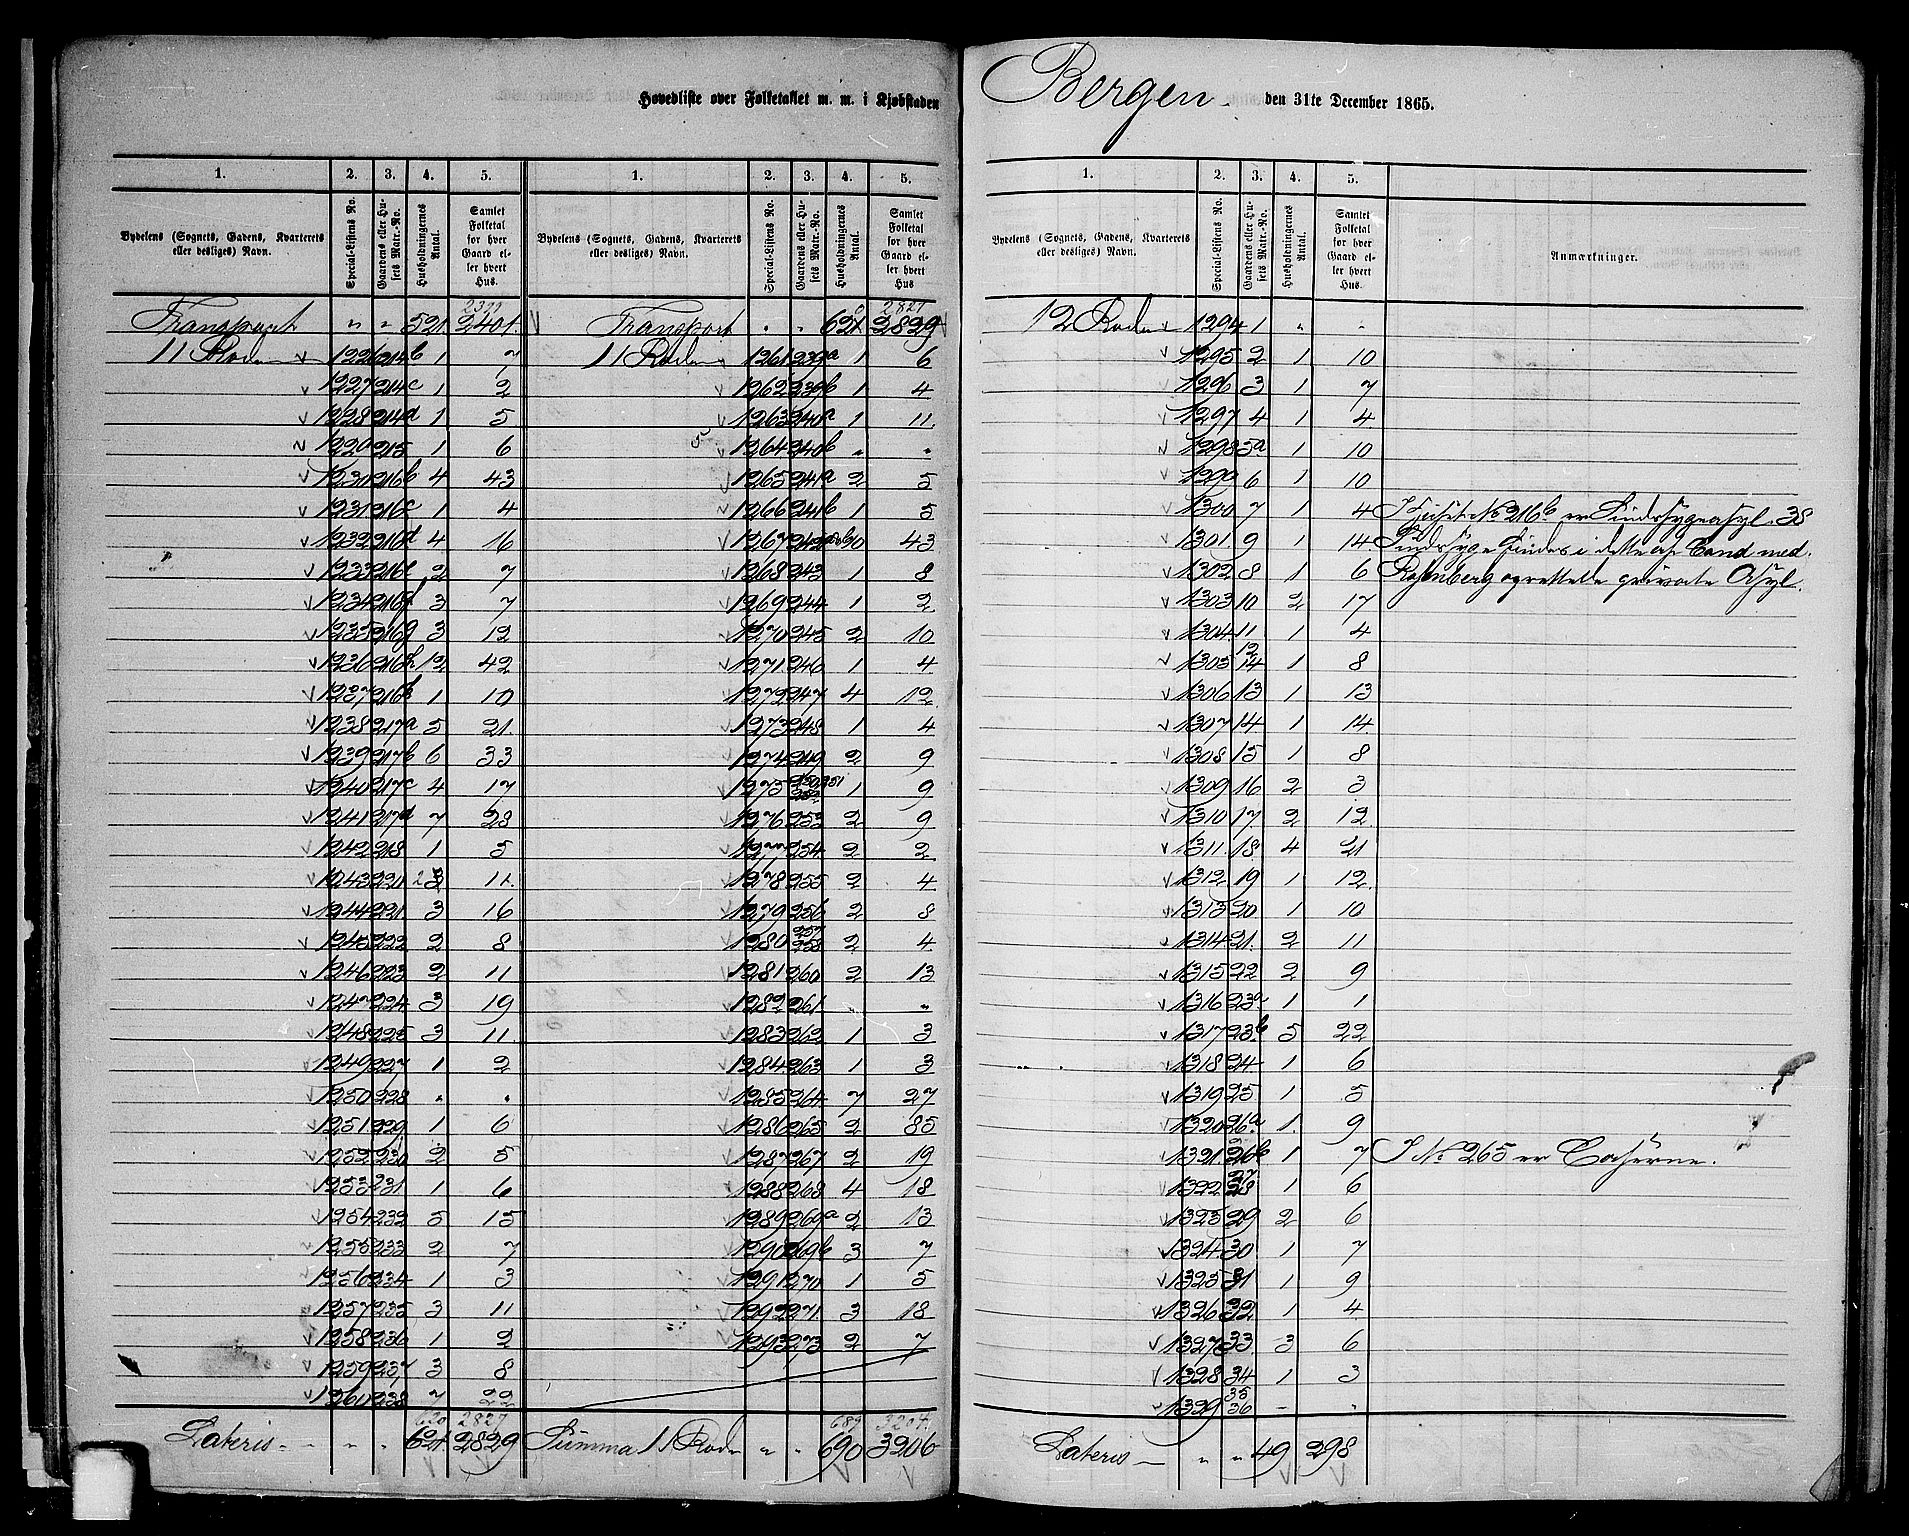 Hovedliste over Folketallet m. m. i Kjøbstaden Bergen den 31te December 1865.
1. 2. 3. 4. 5. 1. 2. 3. 4. 5. 1. 2. 3. 4. 5.
Bydelens (Sognets, Gadens, Kvarterets eller desliges) Navn. Special-Listens No. Gaardens eller Husets Matr.-No. Husholdningernes Antal. Samlet Folketal for hver Gaard eller hvert Hus.
Bydelens (Sognets, Gadens, Kvarterets eller desliges) Navn. Special-Listens No. Gaardens eller Husets Matr.-No. Husholdningernes Antal. Samlet Folketal for hver Gaard eller hvert Hus
Bydelens (Sognets, Gadens, Kvarterets eller desliges) Navn. Special-Listens No. Gaardens eller Husets Matr.-No. Husholdningernes Antal. Samlet Folketal for hver Gaard eller hvert Hus. Anmærkninger.
Transport " " 521 2401.
11 Rode 1226 214b 1 7
1227 214c 1 2
1228 214d 1 5
1229 215 1 6
1230 216b 4 43
1231 216c 1 4
1232 216d 4 16
1233 216e 2 7
1234 216f 3 7
1235 216g 3 12
1236 216h 12 42
1237 216 1 10
1238 217a 5 21.
1239 217b 6 33
1240 217c 4 17
1241 217d 7 23
1242 218 1 5
1243 220 2 11.
1244 221 3 16
1245 222 2 8
1246 223 2 11
1247 224 3 19
1248 225 3 11.
1249 227 1 2
1250 228 " "
1251. 229 1 6
1252 230 2 5
1253 231 1 6
1254 232 5 15
1255 233 2 7
1256 234 1 3
1257 235 3 11
1258 236 1 2
1259 237 3 8
1260 238 7 22
620 2827
Lateris " " 621 2829
2827
Transport " " 621 2829
11 Rode 1261 239a 1 6
1262 239b 1 4
1263 240a 1 11.
1264 240b " "
1265 241a 2 5
1266 241b 1 5
1267 242 10 43
1268 243 1 8
1269 244 1 2
1270 245 2 10
1271. 246 1 4
1272 247 4 12
1273 248 1 4
1274 249 2 9
1275 250 251 252 1 9
1276 253 2 9
1277 254 2 2
1278 255 2 4
1279 256 2 8
1280 257 258 2 4
1281 260 2 13
1282 261. "
1283 262 1 3
1284 263 1 3
1285 264 7 27
1286 265 2 85
1287 267 2 19
1288 268 4 18
1289 269a 2 13
1290 269b 3 7
1291 270 1 5
1292 271. 3 18
1293 273 2 7
689 3204
Summa 11 Rode " " 690 3206
12 Rode 1294 1 " "
1295 2 1 10
1296 3 1 7
1297 4 1 4
1298 5a 1 10
1299 6 1 10
1300 7 1 4
1301. 9 1 14
1302 8 1 6
1303 10 2 17
1304 11 1 4
1305 12 14 1 8
1306 13 1 13
1307 14 1 14
1308 15 1 8
1309 16 2 3
1310 17. 2 12
1311. 18 4 21
1312 19 1 12.
1313 20 1 10
1314 21. 2 11
1315 22 2 9
1316 23a 1 1
1317 23b 5 22
1318 24 1 6
1319 25 1 5
1320 26a 1. 9
1321 26b 1 7
1322 27 28 1 6
1323 29 2 6
1324 30 1 7
1325 31 1 9
1326 32 1 4.
1327 33. 3 6
1328 34 1 3
1329 35 36 - "
Lateris " " 49 298
I Huset No 216b er Sindssygeasyl. 38
Sindssyge findes i dette af Cand med.
Rosenberg oprettede private Asyl.
I No 265 er Caserne.